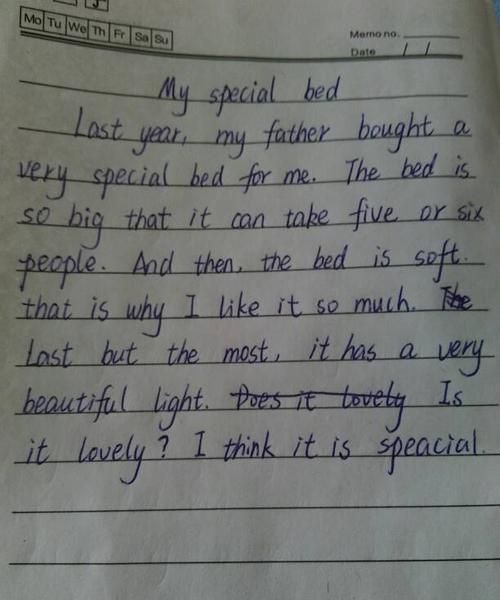 Mo Tu We Th Fr Sa Su
Memo no.
Date / /
My special bed
Last year, my father bought a
very special bed for me. The bed is
so big that it can take five or six
people. And then, the bed is soft.
that is why I like it so much. The
Last but the most, it has a very
beautiful light. Does it lovely Is
it lovely? I think it is speacial.